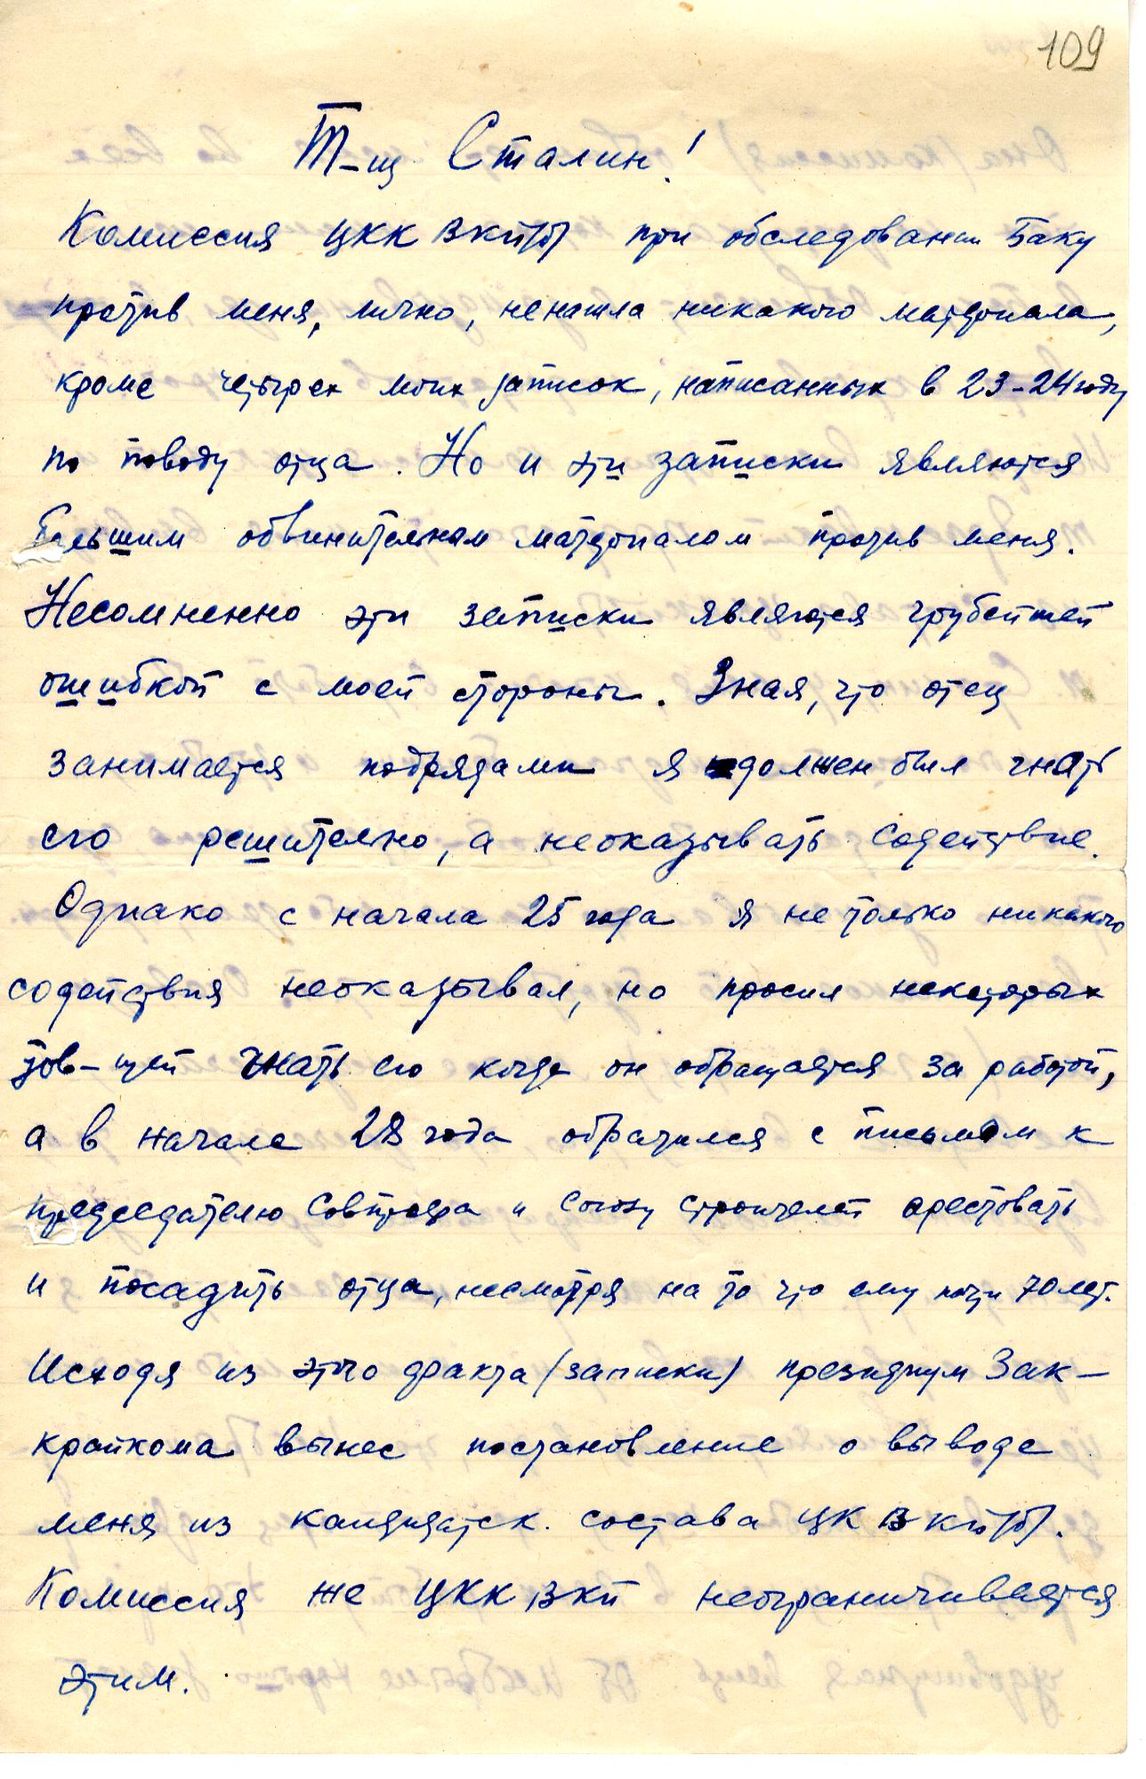 109
Т-щ Сталин!
Комиссия ЦКК ВКП/б/ при обследовании Баку
против меня, лично, ненашла никакого материала,
кроме четырех моих записок, написанных в 23-24 году
по поводу отца. Но и эти записки являются
большим обвинительном материалом против меня.
Несомненно эти записки являются грубейшей
ошибкой с моей стороны. Зная, что отец
занимается подрядами я должен был гнать
его решително, а неоказывать содействие.
Однако с начала 25 года я не только никакого
содействия неоказывал, но просил некоторых
тов-щей гнать его когда он обращается за работой,
а в начале 28 года обратился с письмом к
председателю Совпрофа и Союзу строителей арестовать
и посадить отца, несмотря на то что ему почти 70 лет.
Исходя из этого факта (записки) президиум Зак-
крайкома вынес постановление о выводе
меня из кандидатск. состава ЦК ВКП/б/.
Комиссия же ЦКК ВКП неограничивается
этим.